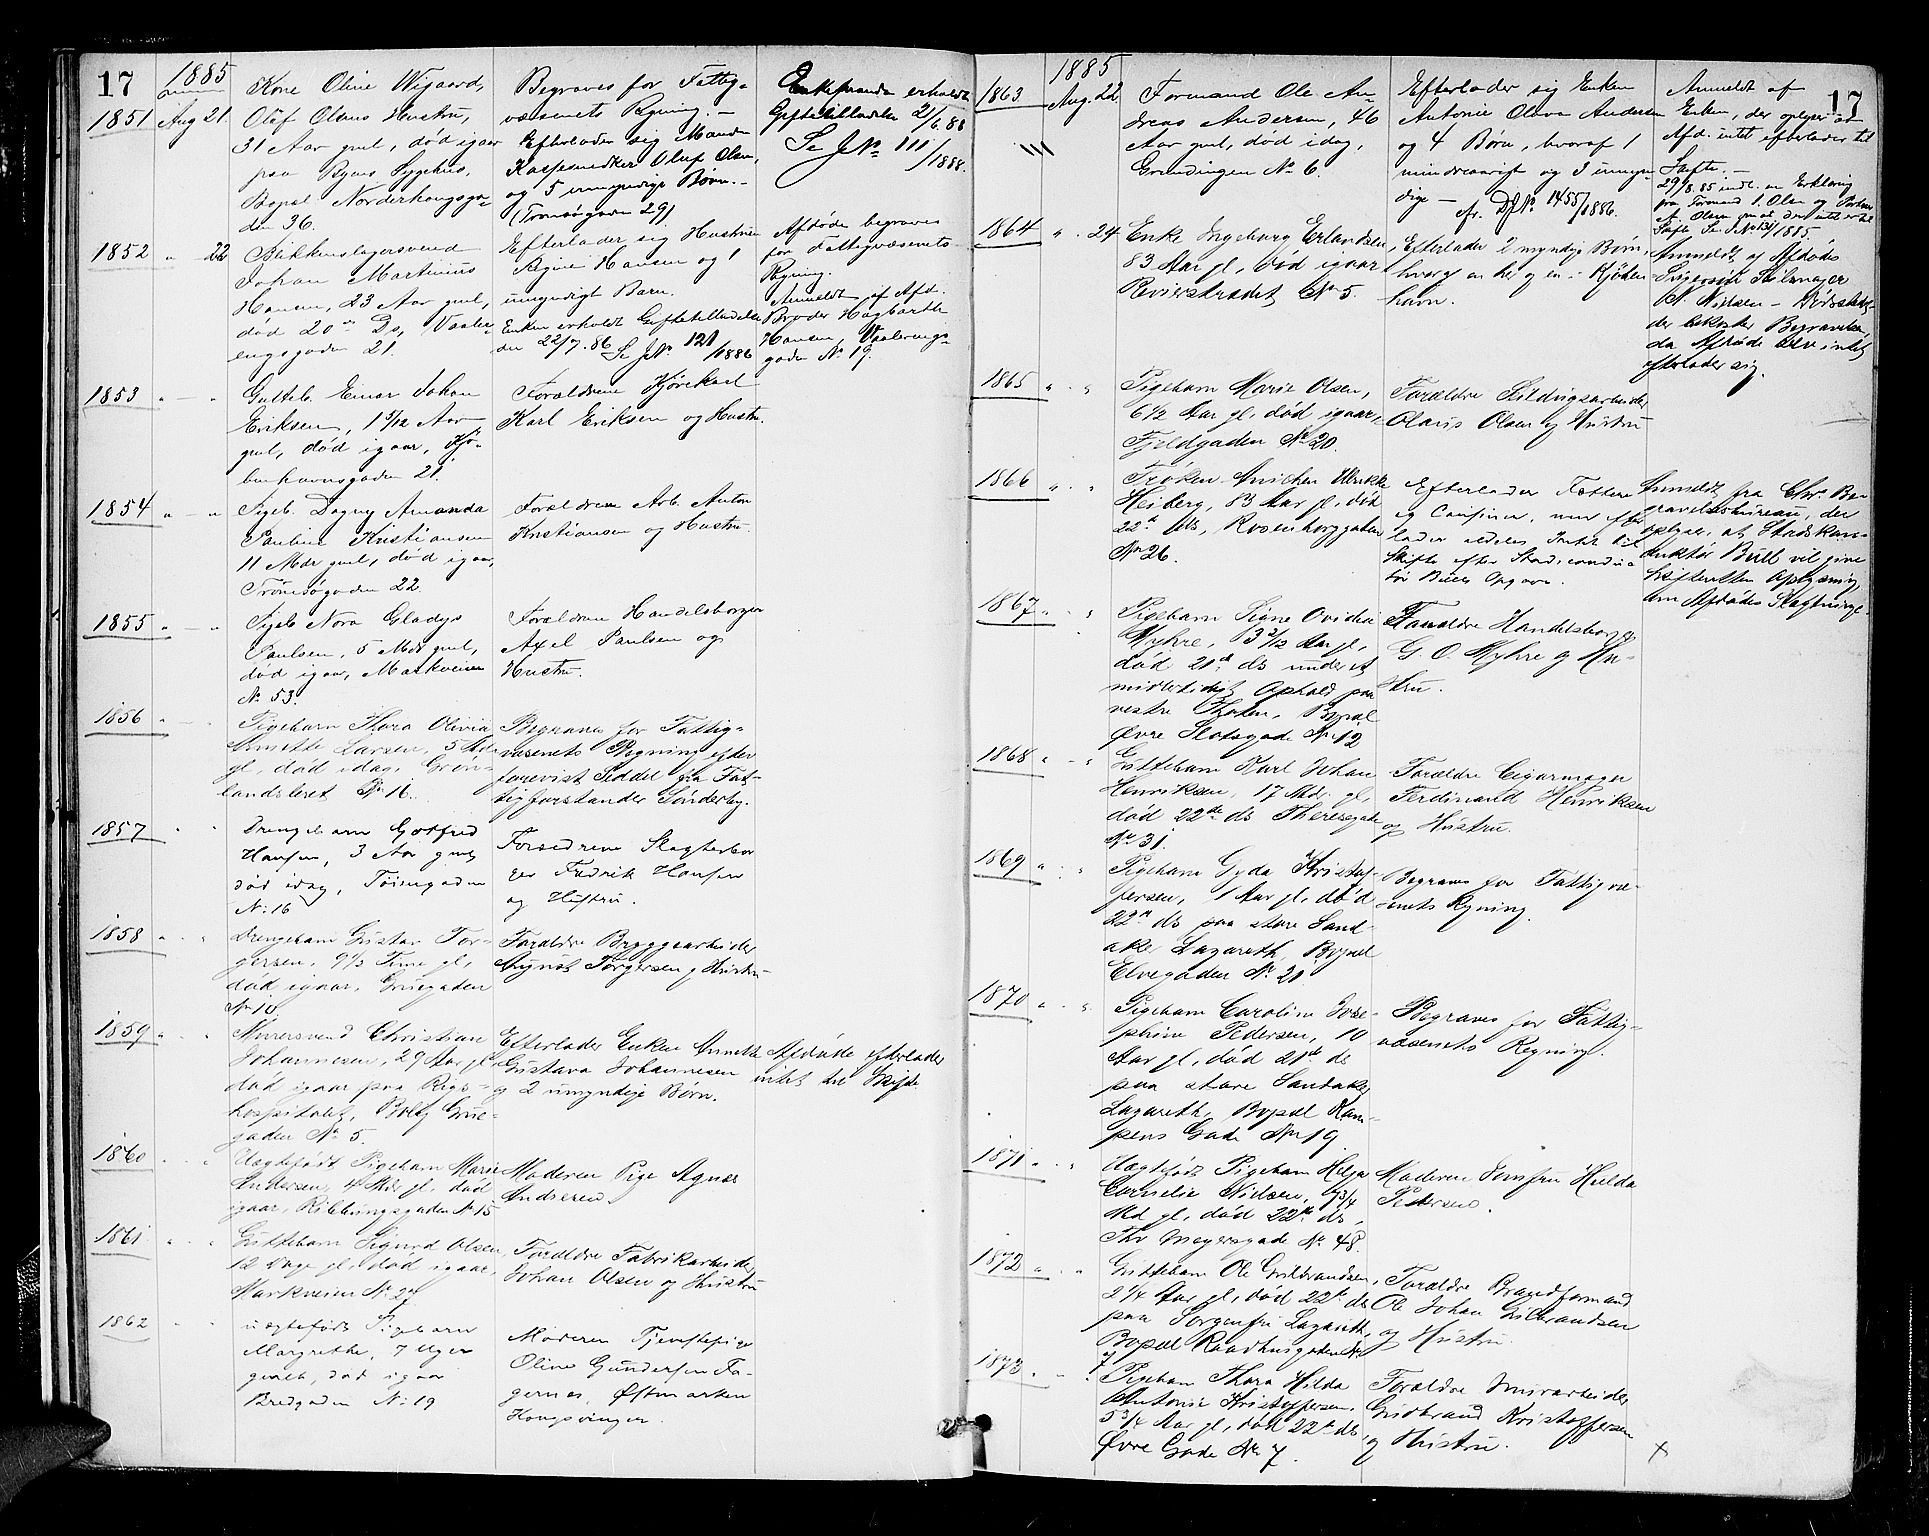 17
1885
1851 Aug 21
Kone Oline Wigaard,
Oluf Olsens Hustru,
31 Aar gml, død igaar
paa Byens Sygehus,
Bopæl Norderhougsga-
den 36.
Begraves for Fattig-
væsenets Regning. —
Efterlader sig Manden
Oluf Olsen,
og 5 umyndige Børn. —
(Tromsøgaden 29)
Enkemanden erholdt
Giftetilladelse 2/6. 88
Se J. No 111/1888.
1852 " 22
Blikkenslagersvend
Johan Martinius
Hansen, 23 Aar gml,
død 20de Ds, Vaaler-
engsgaden 21.
Efterlader sig Hustruen
Regine Hansen og 1
umyndigt Barn.
Enken erholdt Giftetilladelse
den 22/7. 86 Se J. No 121/1886
Afdøde begraves
for Fattigvæsenets
Regning.
Anmeldt af Afd.
Broder Hagbarth
Hansen, Vaalerengs-
gaden No 19.
1853 " — "
Gutteb. Einar Johan
Eriksen, 1 5/12 Aar
gml, død igaar, Kjø-
benhavnsgaden 21.
Forældrene Kjørekarl
Karl Eriksen og Hustru.
1854 " — "
Pigeb. Dagny Amanda
Pauline Kristiansen
11 Mdr gml, død igaar,
Tromsøgaden 22.
Forældrene Arb. Anton
Kristiansen og Hustru.
1855 " — "
Pigeb Nora Gladys
Paulsen, 5 Mdr gml,
død igaar, Markveien
No 53.
Forældrene Handelsborger
Axel Paulsen og
Hustru.
1856 " — "
Pigebarn Thora Olivia
Annette Larsen, 5 Mdr
gl, død idag, Grøn-
landsleret No 16.
Begraves for Fattig-
væsenets Regning efter
forevist Seddel fra Fat-
tigforstander Sønderby.
1857 " "
Drengebarn Gotfred
Hansen, 3 Aar gml,
død idag, Tøiengaden
No 16
Forældrene Slagterbor
ger Fredrik Hansen
og Hustru.
1858 " . "
Drengebarn Gustav Tor-
gersen, 9½ Time gl,
død igaar, Gruegaden
No 10.
Forældre Bryggearbeider
August Torgersen og Hustru
1859 " "
Murersvend Christian
Johannesen, 29 Aar gl,
død igaar paa Rigs-
hospitalet, Bolig Grue-
gaden No 5.
Efterlader Enken Annette
Gustava Johannesen
og 2 umyndige Børn.
Afdøde efterlader
intet til Skifte
1860 " "
Uægtefødt Pigebarn Marie
Andersen, 4 Mdr gl, død
igaar, Ribbungsgaden No 15
Moderen Pige Agnes
Andresen
1861 " "
Guttebarn Sigurd Olsen,
12 Dage gl, død igaar,
Markveien No 27
Forældre Fabrikarbeider
Johan Olsen og Hustru
1862 " "
uægtefødt Pigebarn
Margrethe, 7 Uger
gamelt, død igaar
Bredgaden No 19
Moderen Tjenestepige
Oline Gundersen Fa-
gernes, Østmarken
Kongsvinger.
17
1885
1863 Aug. 22
Formand Ole An-
dreas Andersen, 46
Aar gml, død idag,
Grændingen No 6.
Efterlader sig Enken
Antonie Olava Andersen
og 4 Børn, hvoraf 1
mindreaarigt og 3 umyn-
dige —
Av. D.J. No 1455/1886.
Anmeldt af
Enken, der oplyser at
Afd. intet efterlader til
Skifte. —
29/8. 85 indl. en Erklæring
fra Formand I. Olsen og
A. Olsen om at der intet er til
Skifte Se J No 131/1885
1864 " 24
Enke Ingeborg Erlandsen,
83 Aar gl, død igaar
Revierstrædet No 5.
Efterlader 2 myndige Børn,
hvoraf en her og en i Kjøben-
havn.
Anmeldt af Afdødes
Svigersøn
N. Nielsen —
der bekoster Begravelsen,
da Afdøde selv intet
efterlader sig.
1865 " . "
Pigebarn Marie Olsen,
6½ Aar gl, død igaar,
Fjeldgaden No 20.
Forældre Sildingsarbeider
Olaus Olsen og Hustru
1866 " . "
Frøken Anichen Ulrikke
Heiberg, 83 Aar gl, død
22de ds, Rosenborggaden
No 26.
Efterlader Fættere
og Cousiner, men efter
lader aldeles Intet til
Skifte efter Stadsconduc-
tør Bulls Opgave.
Anmeldt fra Chra Be-
gravelsesbureau, der
oplyser, at Stadskon-
duktør Bull vil give
Skifteretten Oplysning
om Afdødes Slægtninge.
1867 " . "
Pigebarn Signe Ovidia
Myhre, 3 2/12 Aar gl,
død 21de ds under et
midlertidigt Ophold paa
vestre Thoten, Bopæl
Øvre Slotsgade No 12
Forældre Handelsborger
G. O. Myhre og Hu-
stru.
1868 " — "
Guttebarn Karl Johan
Henriksen, 17 Mdr. gl,
død 22de ds Theresegade
No 31.
Forældre Cigarmager
Ferdinand Henriksen
og Hustru.
1869 " . "
Pigebarn Gyda Kristof-
fersen, 1 Aar gl, død
22de ds paa store Sand-
aker Lazareth, Bopæl
Elvegaden No 21
Begraves for Fattigvæ-
senets Regning.
1870 " . "
Pigebarn Caroline Jose-
phine Pedersen, 10
Aar gl, død 21de ds
paa store Sandaker
Lazareth, Bopæl Kam-
pens Gade No 19
Begraves for Fattig-
væsenets Regning.
1871 " . "
Uægtefødt Pigebarn Helga
Cornelia Nielsen, 9 3/4
Md gl, død 22de ds,
Thv Meyersgade No 48.
Moderen Jomfru Hulda
Pedersen.
1872 " . "
Guttebarn Ole Gulbrandsen,
2 1/4 Aar gl, død 22de ds
paa Sorgenfri Lazareth,
Bopæl Raadhusgaden No
7
Forældre Brandformand
Ole Johan Gulbrandsen
og Hustru.
1873 . "
Pigebarn Thora Hilda
Antonie Kristoffersen,
5 3/4 Aar gl, død 22de ds,
Øvre Gade No 7.
Forældre Murarbeider
Gudbrand Kristoffersen
og Hustru.
x